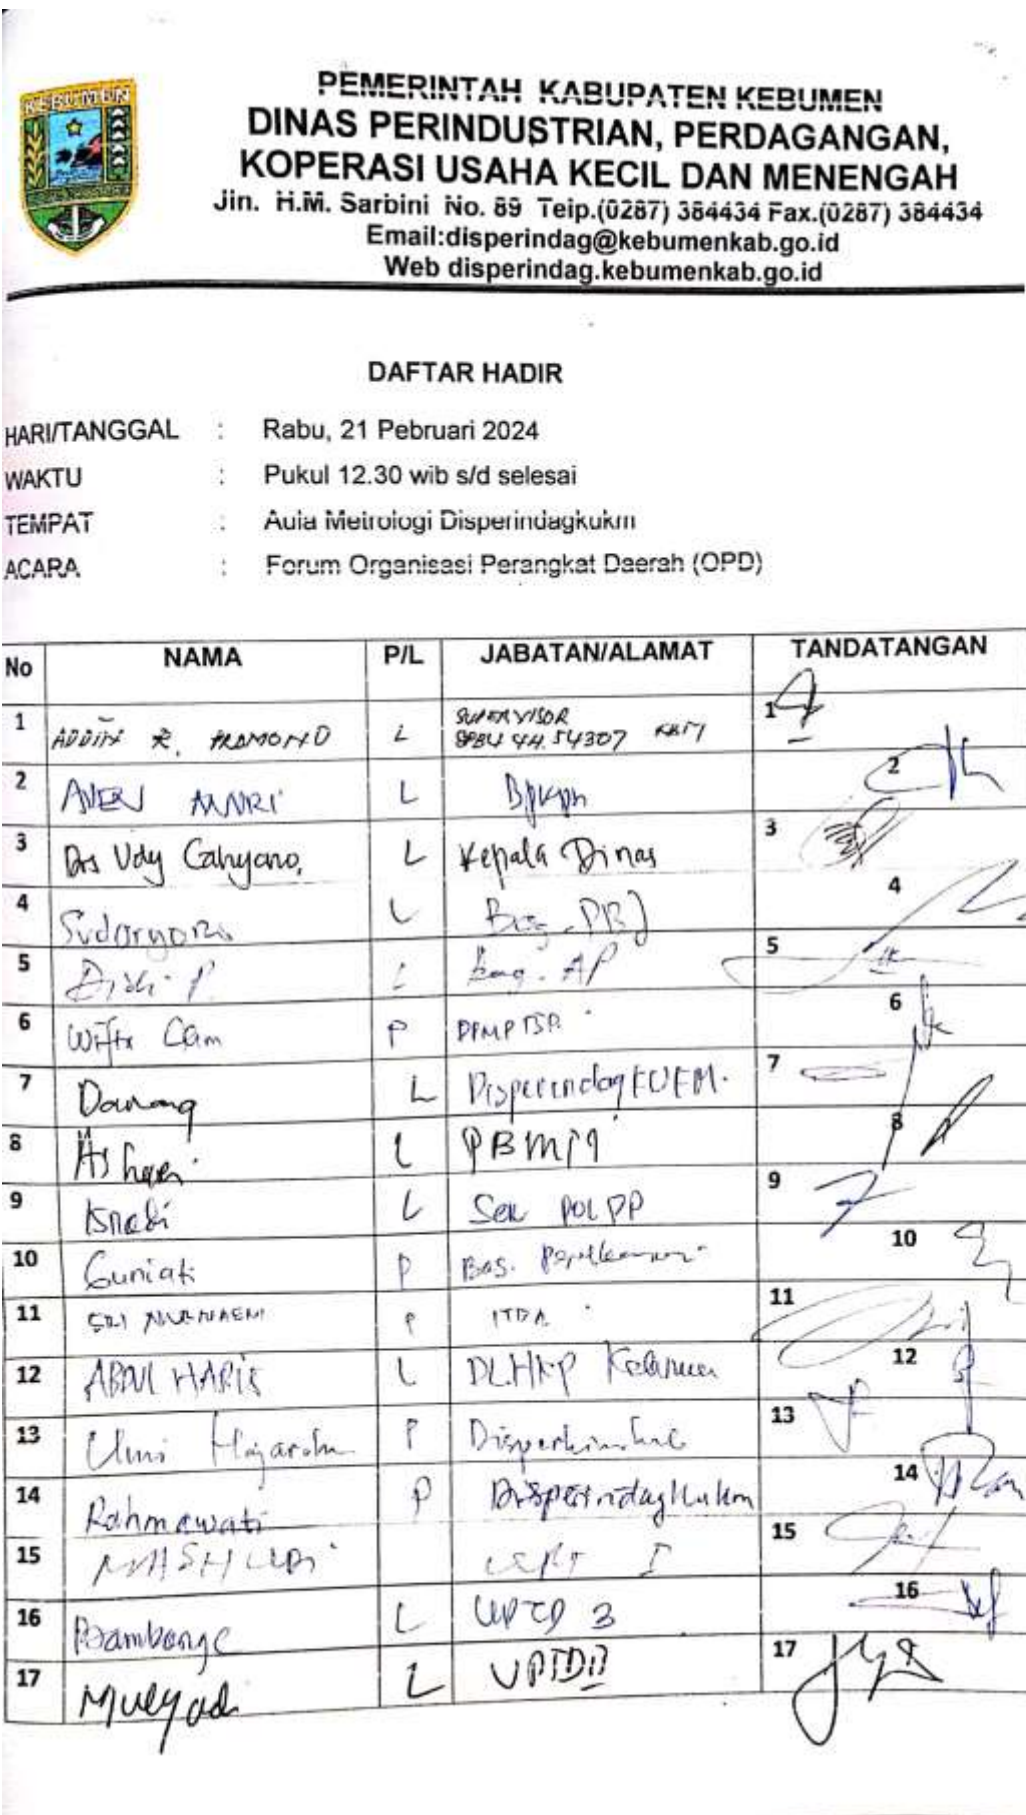 KEBUMEN
PEMERINTAH KABUPATEN KEBUMEN
DINAS PERINDUSTRIAN, PERDAGANGAN,
KOPERASI USAHA KECIL DAN MENENGAH
Jln. H.M. Sarbini No. 89 Telp.(0287) 384434 Fax.(0287) 384434
Email:disperindag@kebumenkab.go.id
Web disperindag.kebumenkab.go.id
DAFTAR HADIR
HARI/TANGGAL : Rabu, 21 Pebruari 2024
WAKTU : Pukul 12.30 wib s/d selesai
TEMPAT : Aula Metrologi Disperindagkukm
ACARA : Forum Organisasi Perangkat Daerah (OPD)
No NAMA P/L JABATAN/ALAMAT TANDATANGAN
1 ADDIN R. PRAMONO L SUPERVISOR 1
SPBU 44.54307 KBM
2 L 2
3 Drs Udy Cahyono, L Kepala Dinas 3
4 Sudaryono L Bag. PBJ 4
5 P. L Bag. AP 5
6 P DPMPTSP 6
7 Danang L Disperindag KUKM. 7
8 L 8
9 Isnadi L Sek POL PP 9
10 Guniati P Bag. 10
11 SRI NURNAENI P ITDA 11
12 ABDUL HARIS L DLHKP 12
13 Umi Hajaroh P 13
14 Rahmawati P Disperindagkukm 14
15 MASHURI UPT I 15
16 L UPTD 3 16
17 Mulyadi L UPTD II 17